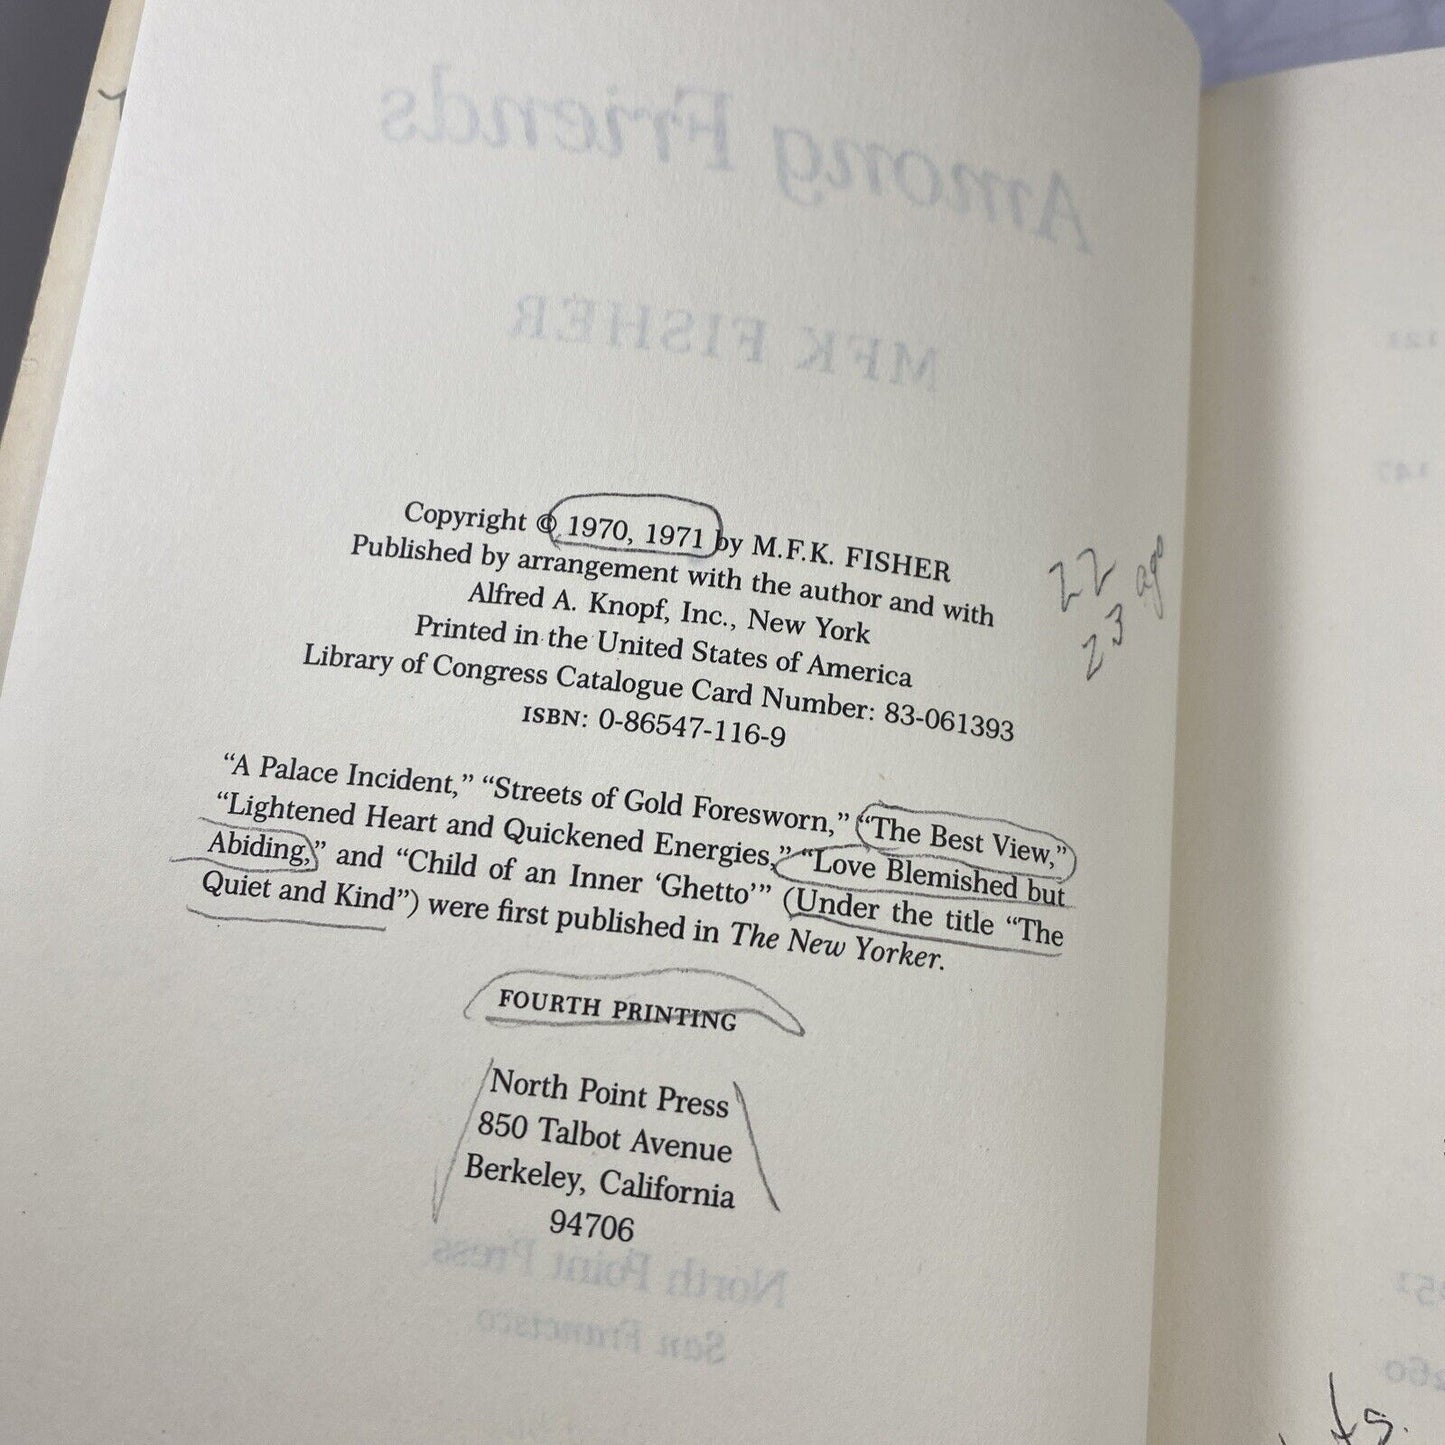 Among Friends
MFK FISHER
Copyright © 1970, 1971 by M.F.K. FISHER
Published by arrangement with the author and with
Alfred A. Knopf, Inc., New York
Printed in the United States of America
Library of Congress Catalogue Card Number: 83-061393
ISBN: 0-86547-116-9
22
23 ago
“A Palace Incident,” “Streets of Gold Foresworn,” “The Best View,”
“Lightened Heart and Quickened Energies,” “Love Blemished but
Abiding,” and “Child of an Inner ‘Ghetto’” (Under the title “The
Quiet and Kind”) were first published in The New Yorker.
FOURTH PRINTING
North Point Press
850 Talbot Avenue
Berkeley, California
94706
North Point Press
San Francisco
121
147
260